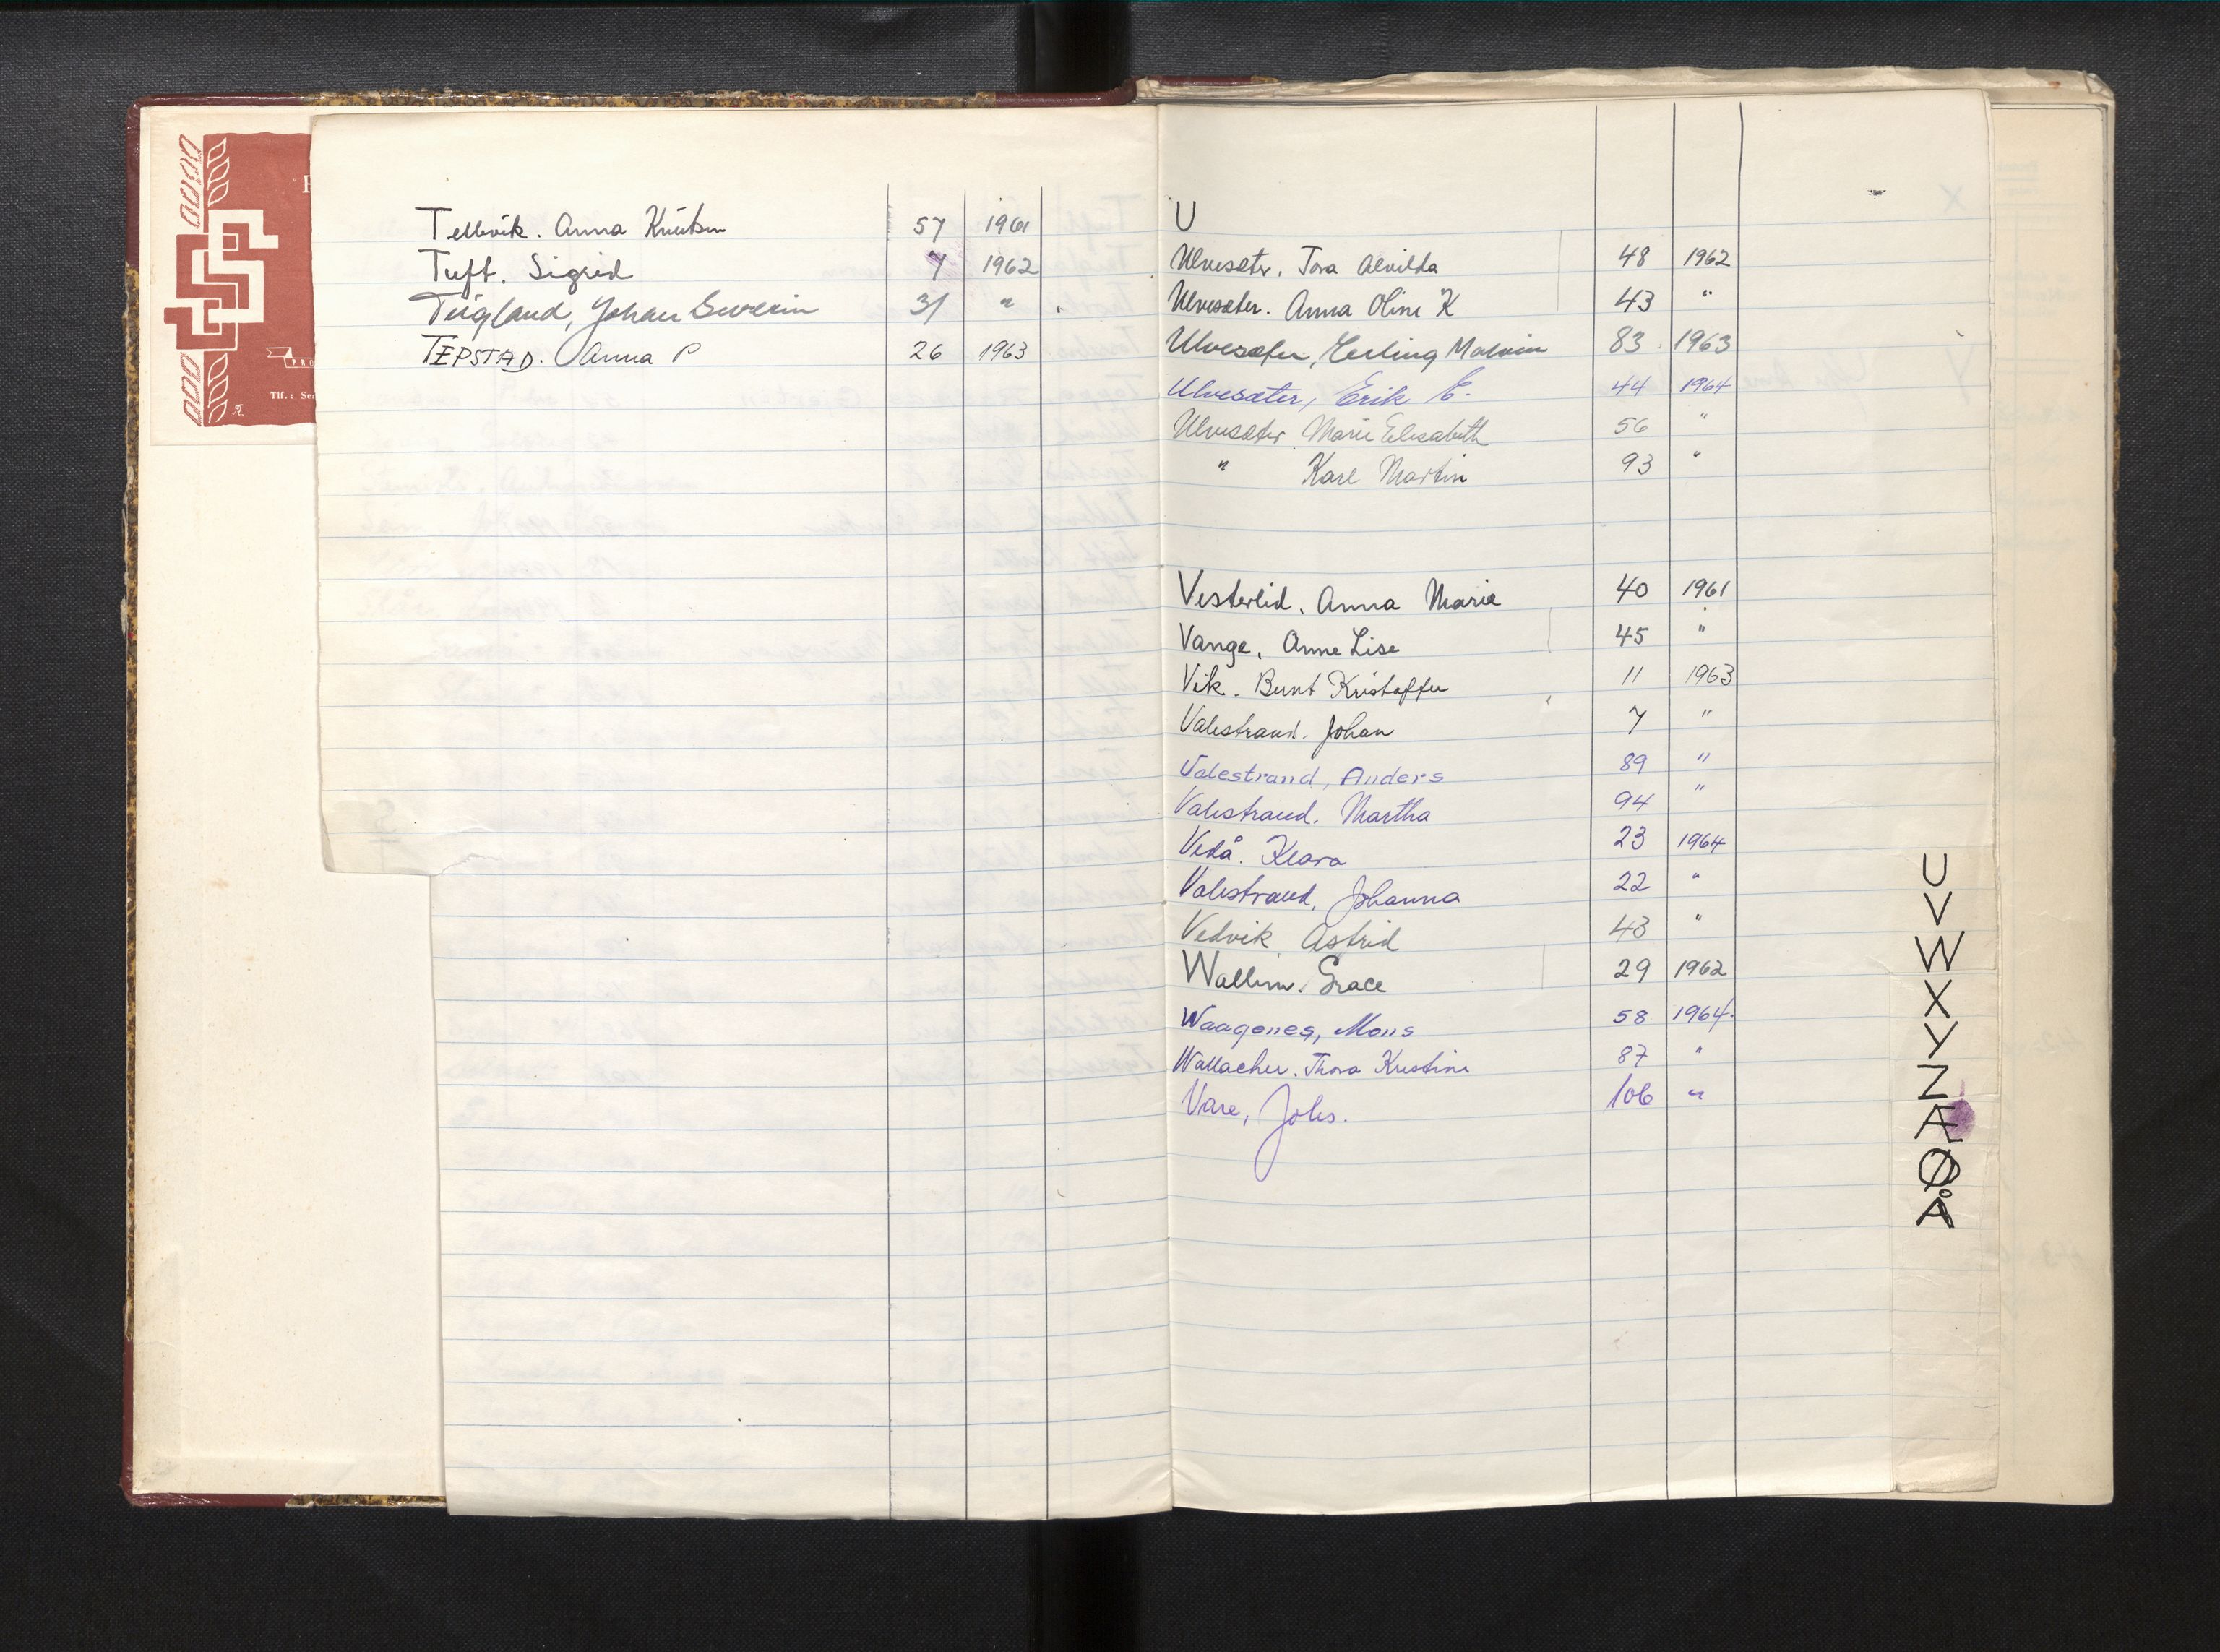 Tellevik. Anna Knutsen 57 1961
Tuft. Sigrid 7 1962
Teigland, Johan Severin 31 "
TEPSTAD. Anna P 26 1963
Tlf.:
U
Ulvesæter. Tora Alvilda 48 1962
Ulvesæter. Anna Oline K 43 "
Ulvesæter, Erling Malvin 83 1963
Ulvesæter, Erik E. 44 1964
Ulvesæter, Marie Elisabeth 56 "
" Karl Martin 93 "
Vesterlid. Anna Marie 40 1961
Vange, Anne Lise 45 "
Vik. Bernt Kristoffer 11 1963
Valestrand. Johan 7 "
Valestrand, Anders 89 "
Valestrand. Martha 94 "
Vedå. Klara 23 1964
Valestrand, Johanna 22 "
Vedvik Astrid 43 "
Wallem. Grace 29 1962
Waagenes, Mons 58 1964.
Wallacher. Thora Kristine 87 "
Vare, Johs. 106 "
U
V
W
X
Y
Z
Æ
Ø
Å